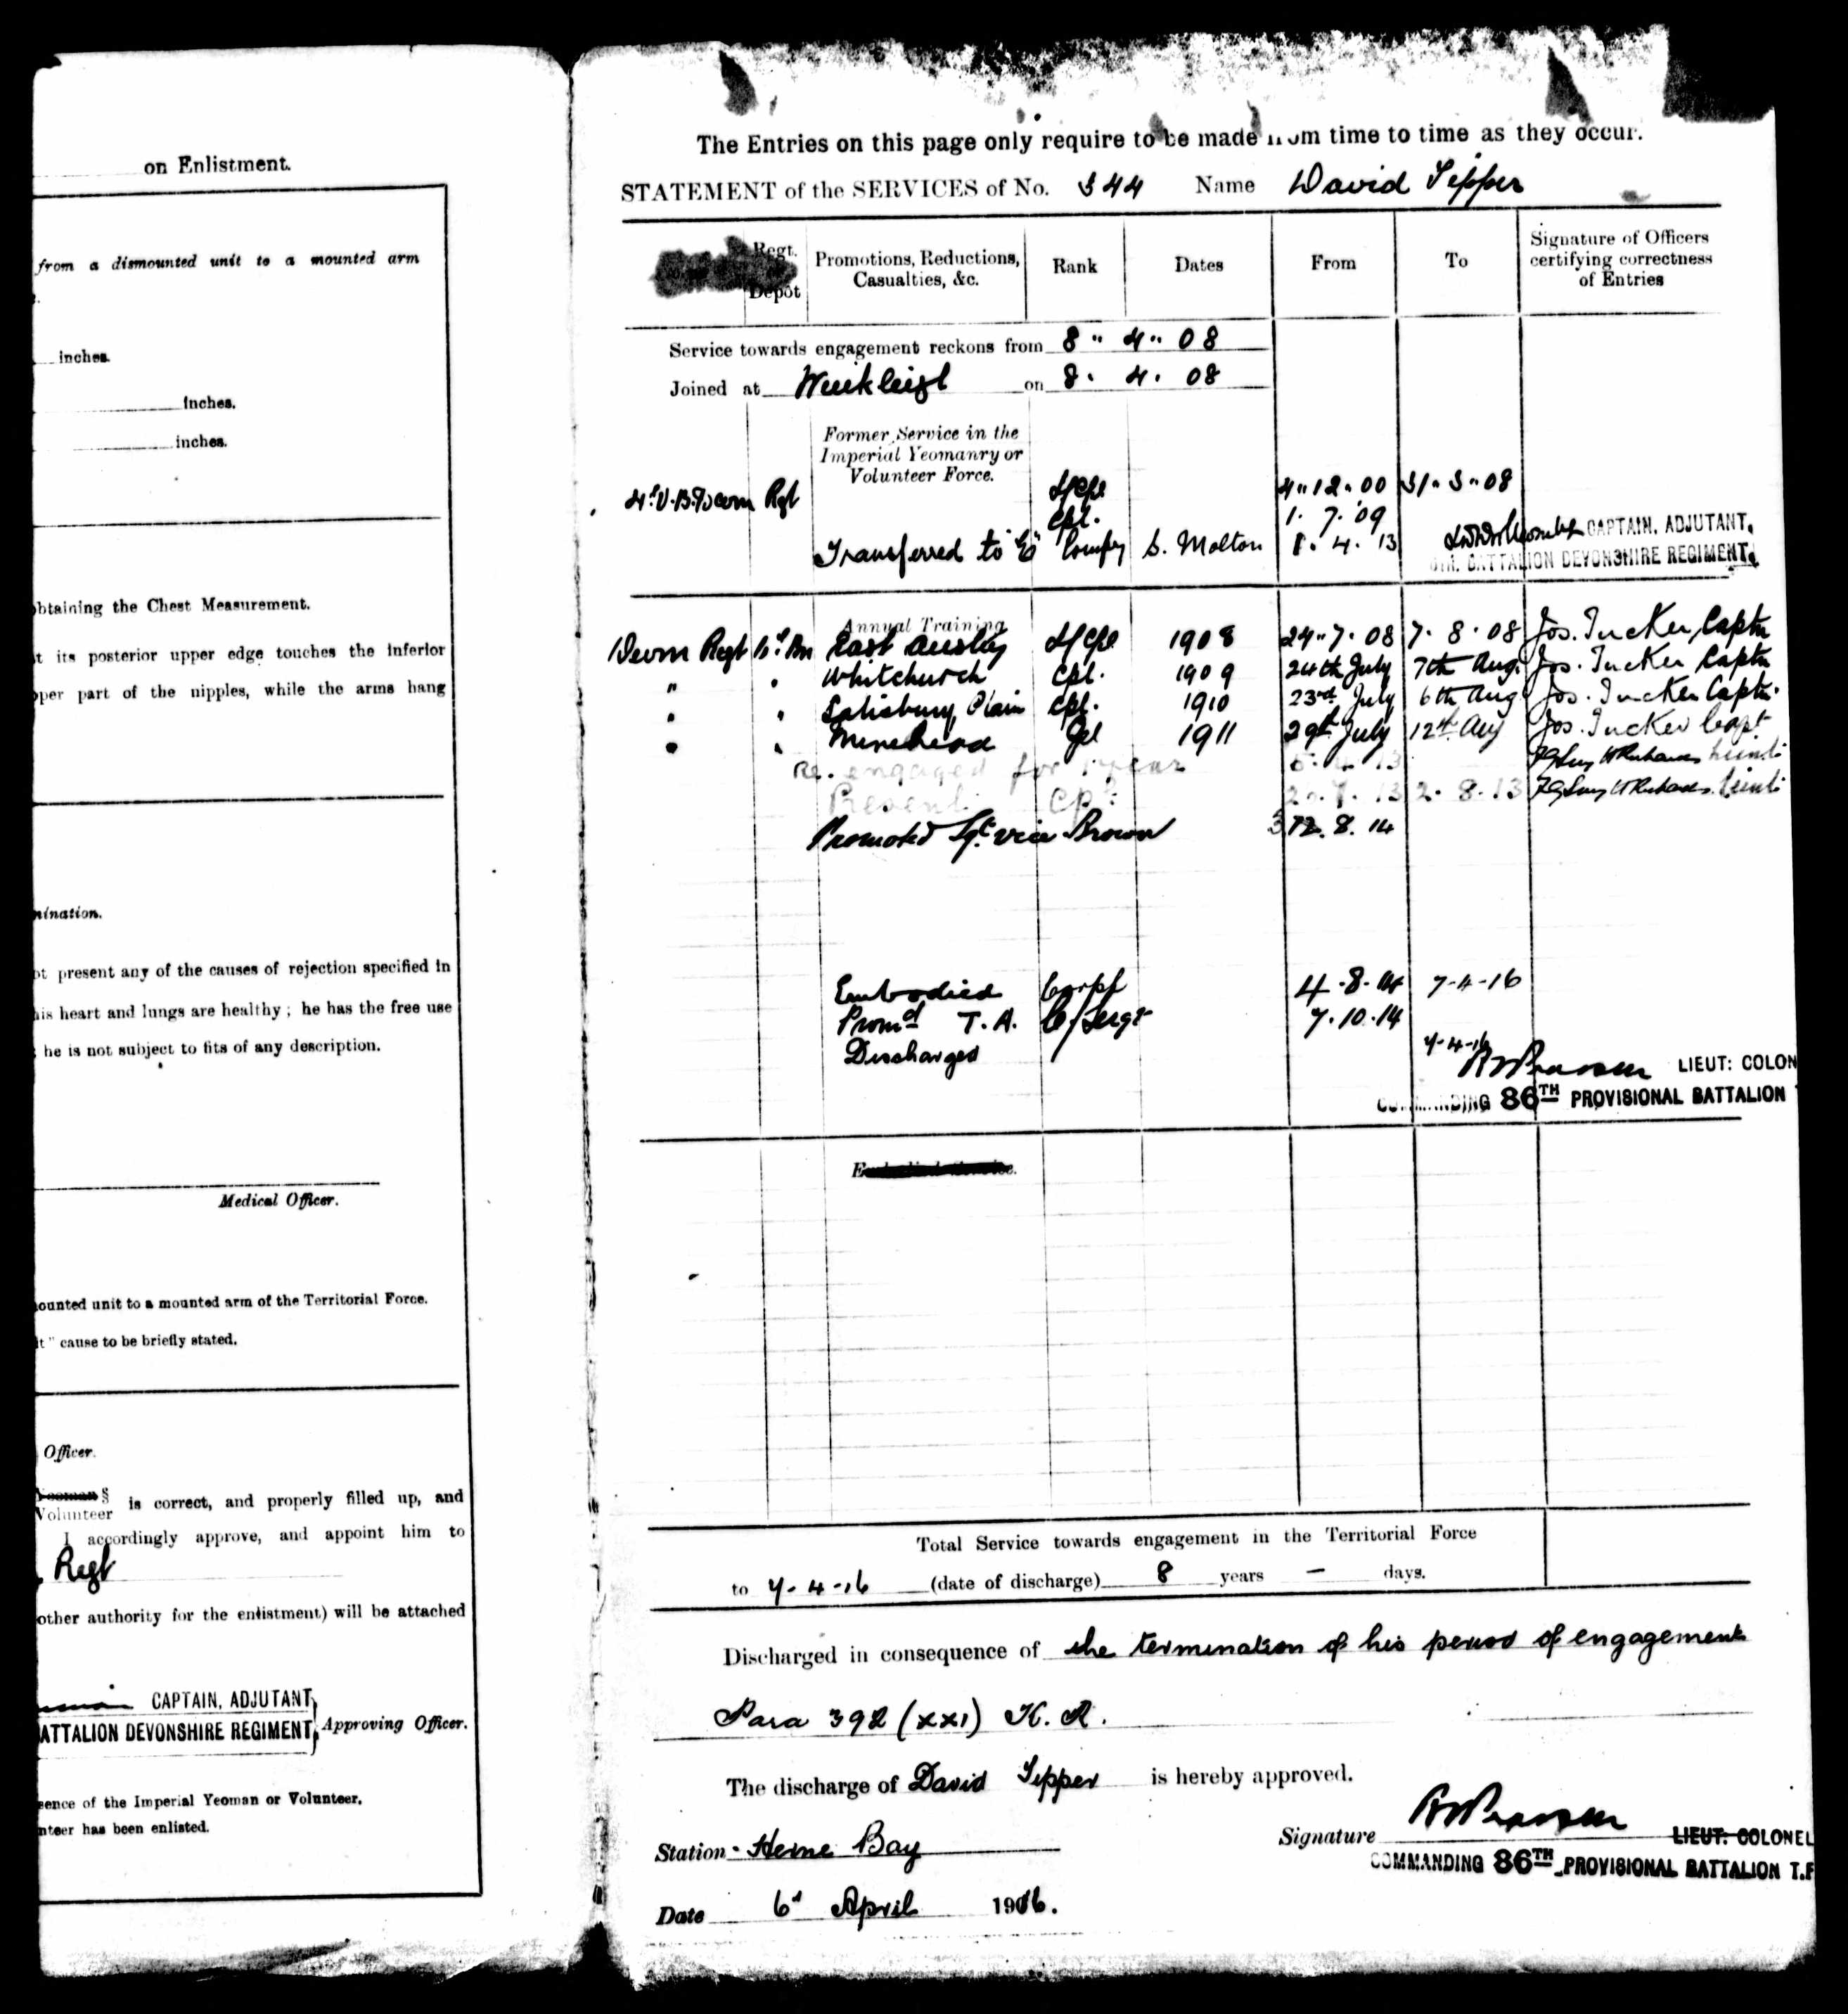 on Enlistment.
from a dismounted unit to a mounted arm
inches.
inches.
inches.
obtaining the Chest Measurement.
t its posterior upper edge touches the inferior
pper part of the nipples, while the arms hang
mination.
ot present any of the causes of rejection specified in
his heart and lungs are healthy; he has the free use
; he is not subject to fits of any description.
Medical Officer.
ounted unit to a mounted arm of the Territorial Force.
it" cause to be briefly stated.
Officer.
Yeoman §
Volunteer is correct, and properly filled up, and
I accordingly approve, and appoint him to
Regt
other authority for the enlistment) will be attached
CAPTAIN, ADJUTANT,
BATTALION DEVONSHIRE REGIMENT, Approving Officer.
sence of the Imperial Yeoman or Volunteer,
nteer has been enlisted.
The Entries on this page only require to be made from time to time as they occur.
STATEMENT of the SERVICES of No. 344 Name David
Regt. Depôt Promotions, Reductions, Casualties, &c. Rank Dates From To Signature of Officers certifying correctness of Entries
Service towards engagement reckons from 8" 4" 08
Joined at on 8. 4. 08
Former Service in the
Imperial Yeomanry or
Volunteer Force.
4th V.B. Devon Rgt L/Cpl 4" 12" 00 31" 3" 08
Cpl. 1. 7. 09
Transferred to "E" Company S. Molton 1. 4. 13 CAPTAIN, ADJUTANT,
6TH. BATTALION DEVONSHIRE REGIMENT.
Annual Training
Devon Regt 6th Bn East L/Cpl 1908 24" 7. 08 7. 8. 08 Jos. Tucker, Captn
" " Whitchurch Cpl. 1909 24th July 7th Aug. Jos. Tucker Captn
" " Salisbury Plain Cpl. 1910 23rd July 6th Aug Jos. Tucker Captn.
" " Minehead Cpl 1911 29th July 12th Aug Jos. Tucker Capt
Re. engaged for 1 year 13 Lieut:
Present Cpl: 13 2. 8. 13 Lieut:
Promoted Sgt. vice Brown 8. 14
Embodied Corpl 4.8.14 7-4-16
Promd T.A. C/Sergt 7.10.14
Discharged 7-4-16
LIEUT: COLON
COMMANDING 86TH PROVISIONAL BATTALION
Total Service towards engagement in the Territorial Force
to 7-4-16 (date of discharge) 8 years — days.
Discharged in consequence of the termination of his period of engagement
Para 392 (xxi) K. R.
The discharge of David is hereby approved.
Signature LIEUT: COLONEL
Station - Herne Bay
COMMANDING 86TH PROVISIONAL BATTALION T.F
Date 6th April 1916.